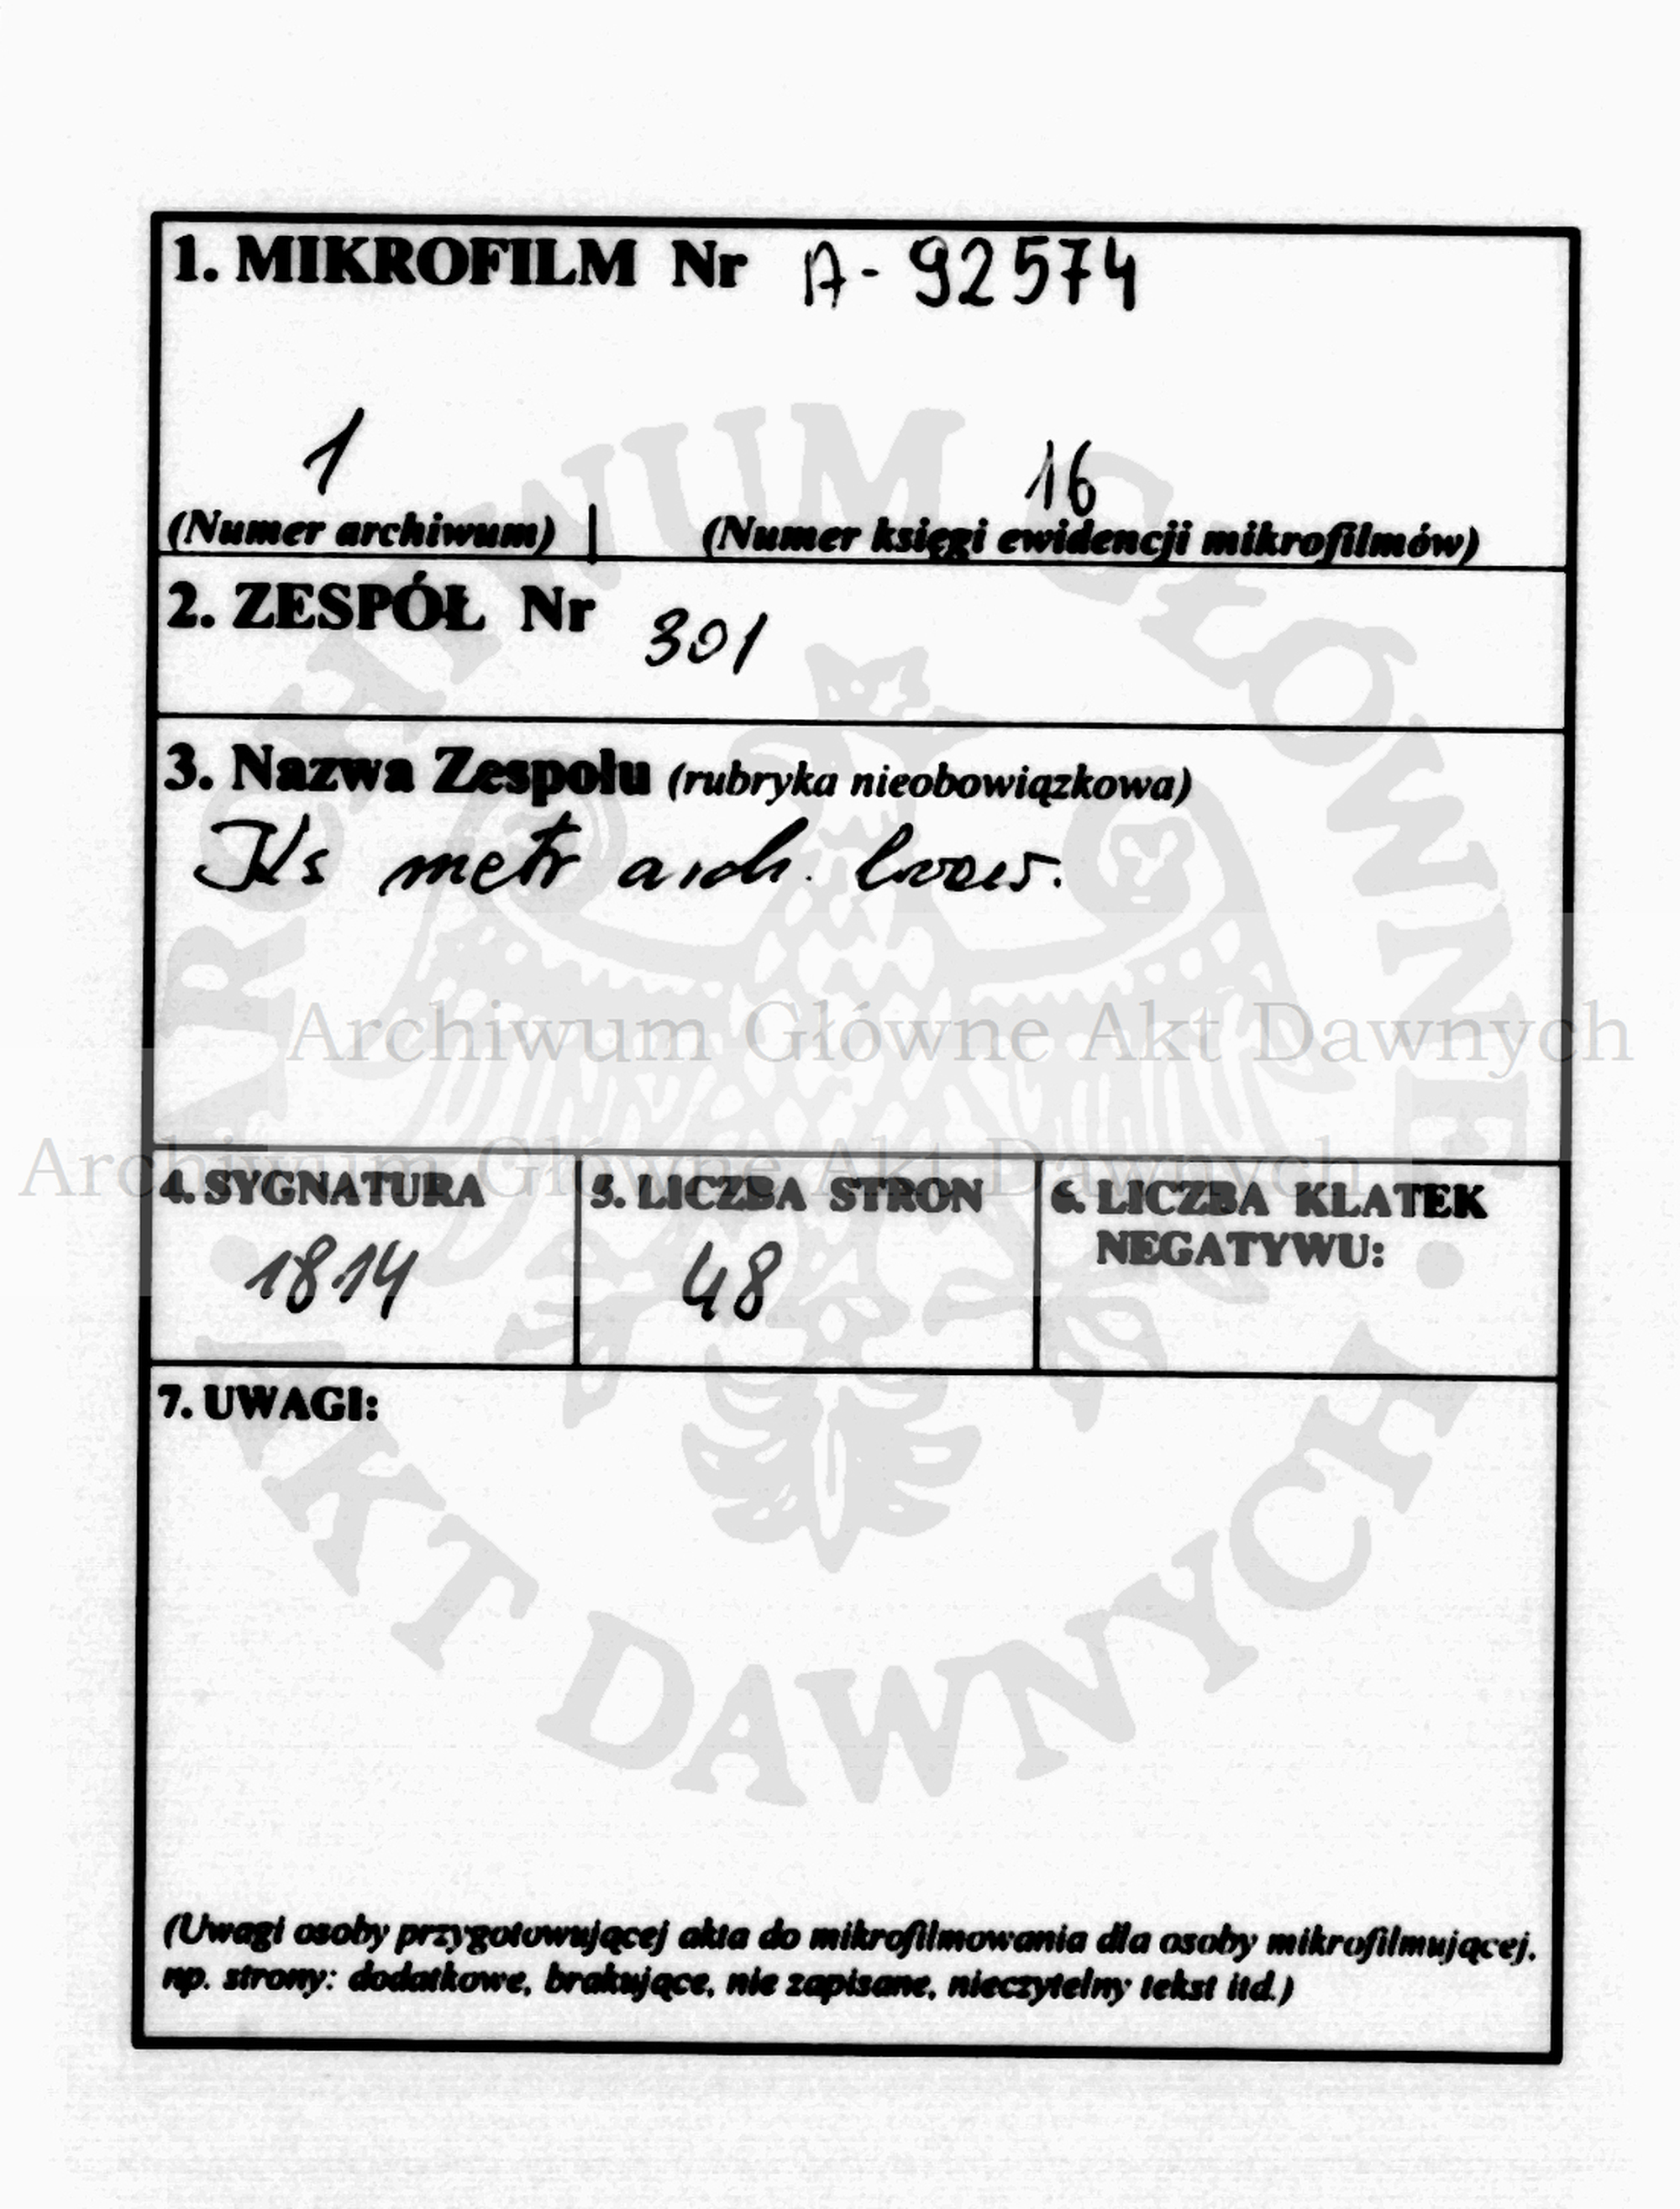 1. MIKROFILM Nr A-92574
1 16
(Numer archiwum) | (Numer księgi ewidencji mikrofilmów)
2. ZESPÓŁ Nr 301
3. Nazwa Zespołu (rubryka nieobowiązkowa)
Ks metr arch. lwow.
Archiwum Główne Akt Dawnych
Archiwum Główne Akt Dawnych
4. SYGNATURA 5. LICZBA STRON 6. LICZBA KLATEK
NEGATYWU:
1814 48
7. UWAGI:
(Uwagi osoby przygotowującej akta do mikrofilmowania dla osoby mikrofilmującej,
np. strony: dodatkowe, brakujące, nie zapisane, nieczytelny tekst itd.)
ARCHIWUM GŁÓWNE
AKT DAWNYCH